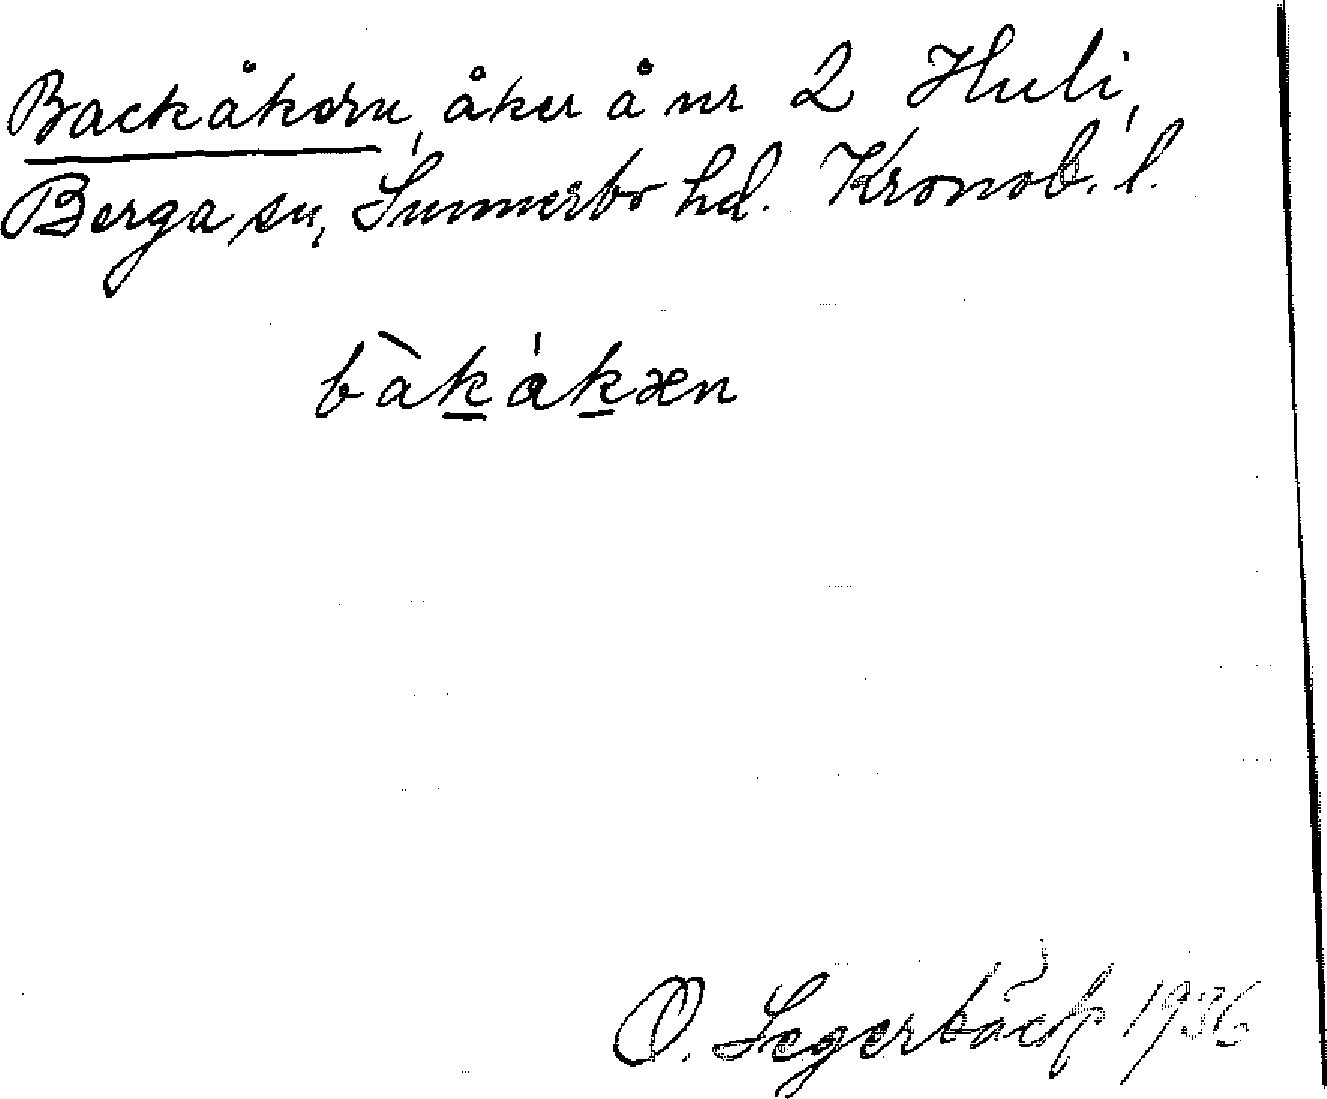 Backåkern, åker å nr 2 Huli,
Berga sn, Sunnerbo hd. Kronob. l.
bàk̲ák̲æn
O. Segerbäck 1936